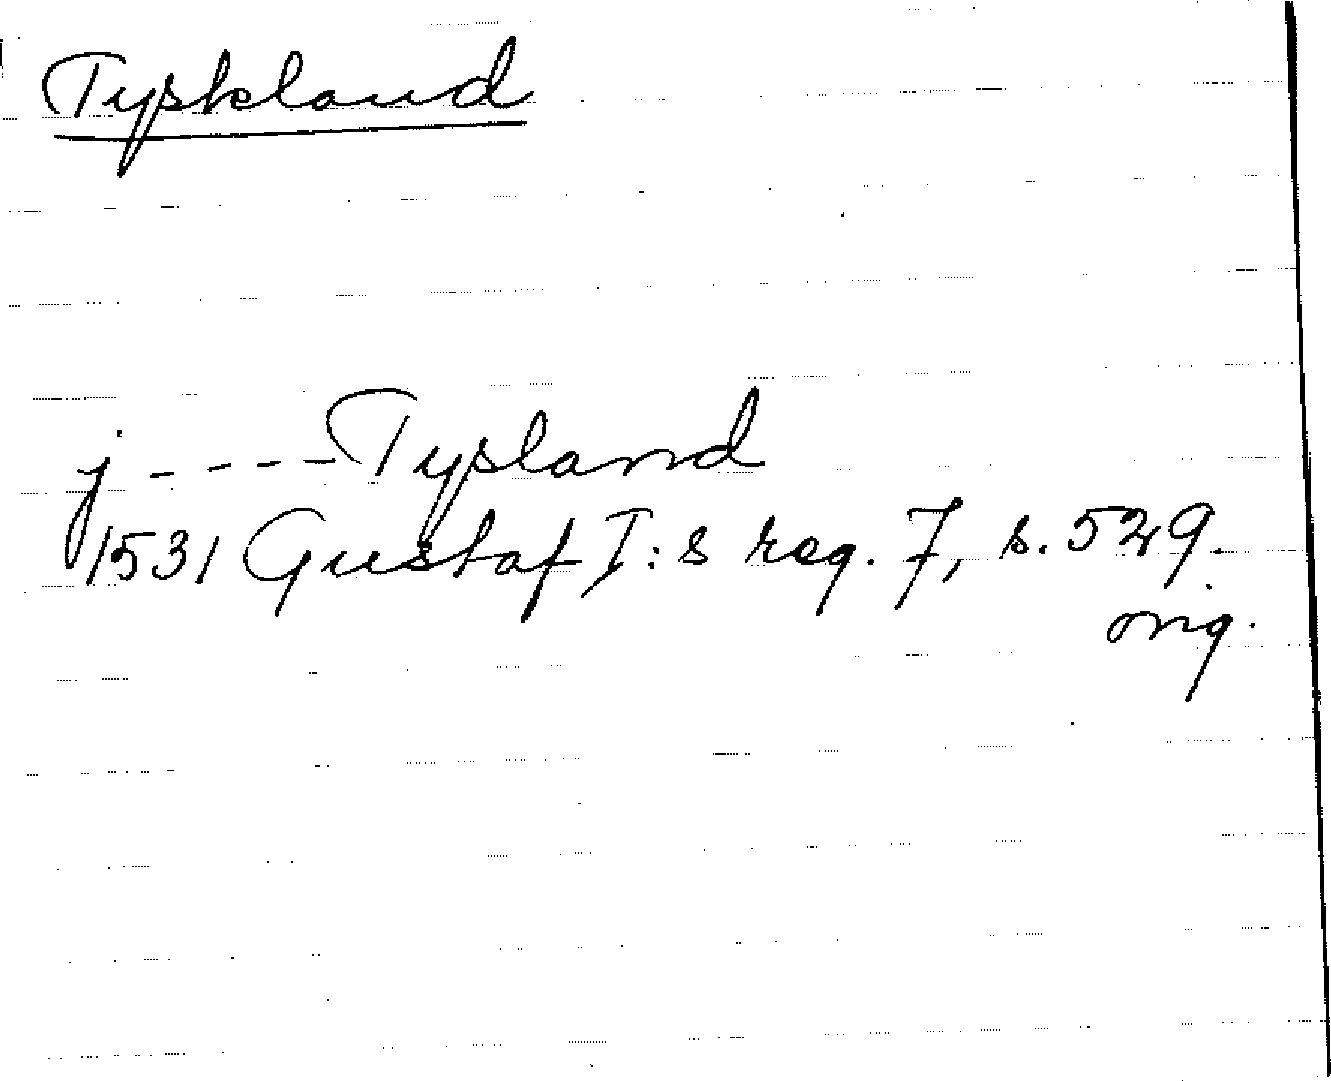 Tyskland
j - - - - - Tysland
1531 Gustaf I:s reg. 7, s. 529.
orig.